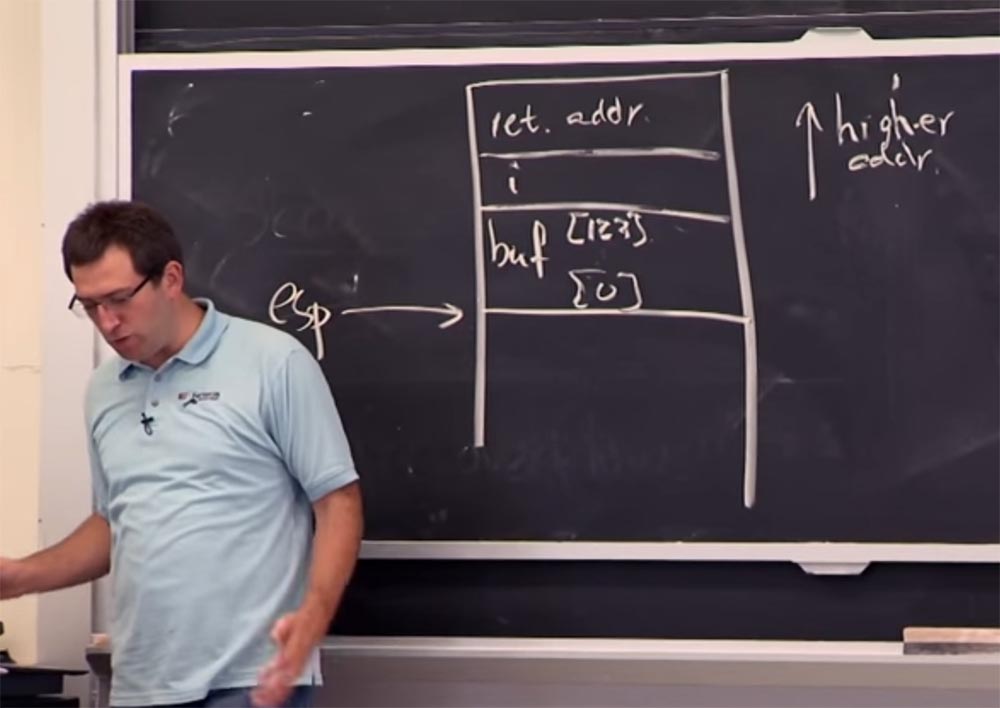 ret. addr.
i
buf [127]
[0]
esp
higher
addr.